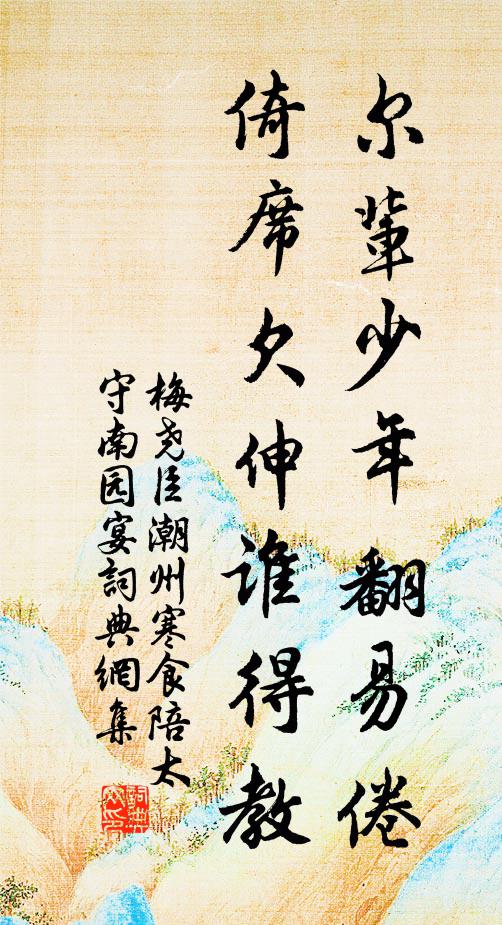 尔輩少年翻易倦
倚席欠伸谁得教
梅尧臣潮州寒食陪太
守南园宴詞典網集